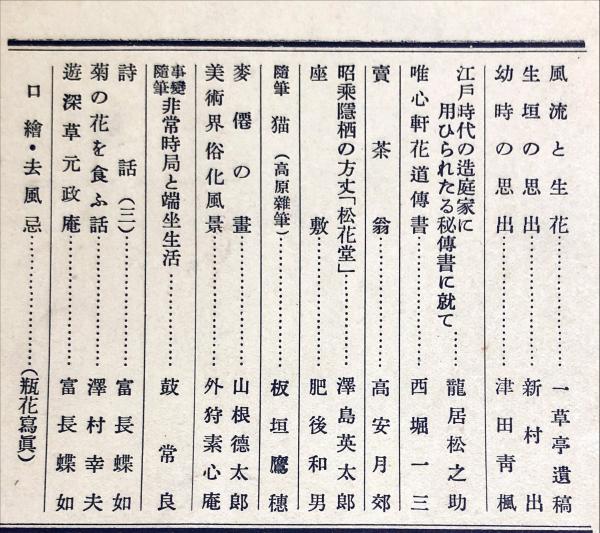 風流と生花……………一草亭遺稿
生垣の思出……………新村出
幼時の思出……………津田靑楓
江戸時代の造庭家に
用ひられたる秘傳書に就て……龍居松之助
唯心軒花道傳書…………西堀一三
賣茶翁……………高安月郊
昭乘隱栖の方丈「松花堂」………澤島英太郎
座敷……………肥後和男
隨筆 猫(高原雜筆)…………板垣鷹穗
麥僊の畫……………山根德太郎
美術界俗化風景…………外狩素心庵
事變隨筆 非常時局と端坐生活………鼓常良
詩話(三)…………富長蝶如
菊の花を食ふ話…………澤村幸夫
遊深草元政庵…………富長蝶如
口繪・去風忌……………(瓶花寫眞)